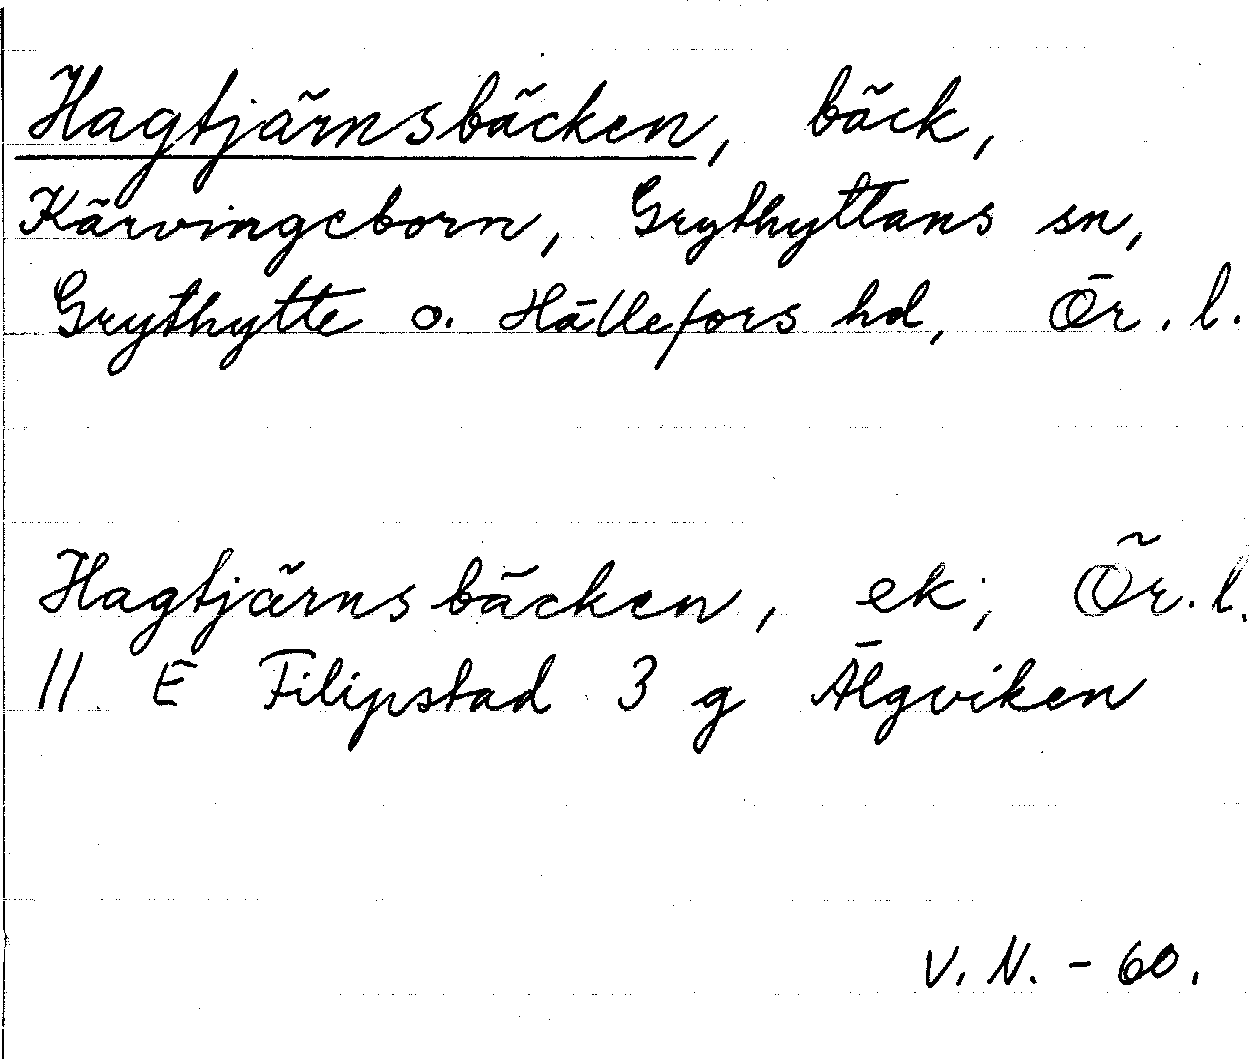 Hagtjärnsbäcken, bäck,
Kärvingeborn, Grythyttans sn,
Grythytte o. Hällefors hd, Ör. l.
Hagtjärnsbäcken, ek; Ör. l.
11 E Filipstad 3 g Älgviken
V. N. - 60.